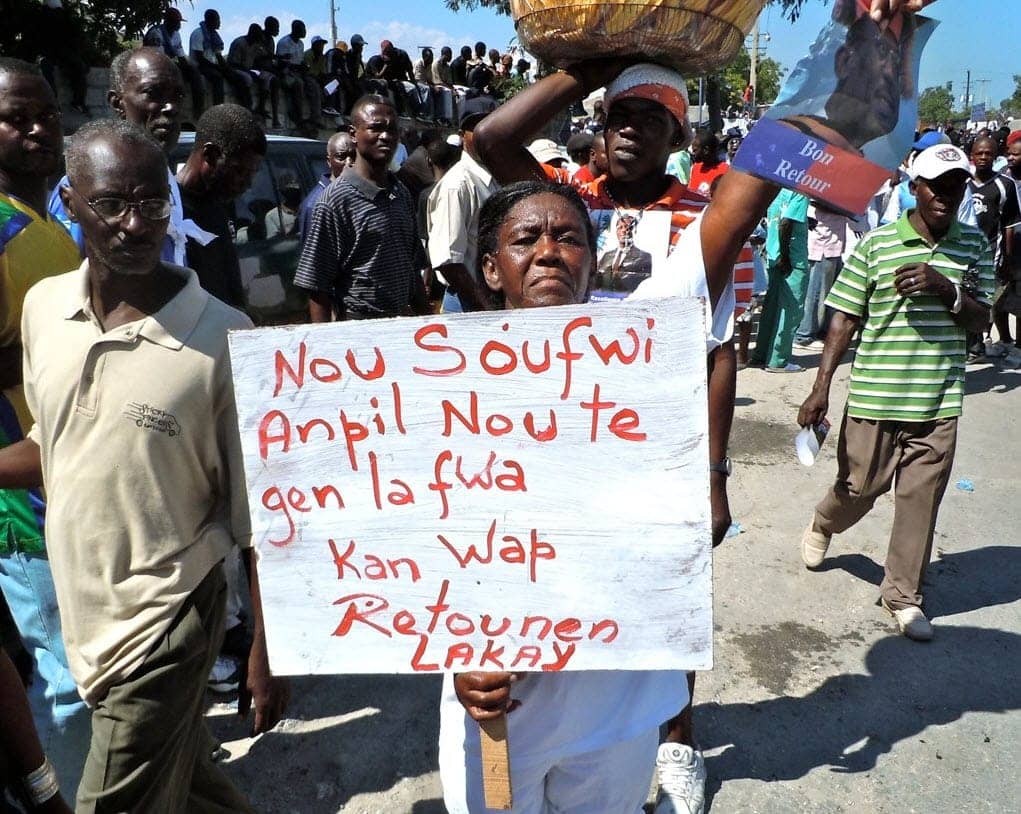 Bon
Retour
Nou Soufwi
Anpil Nou te
gen la fwa
Kan Wap
Retounen
LAKAY